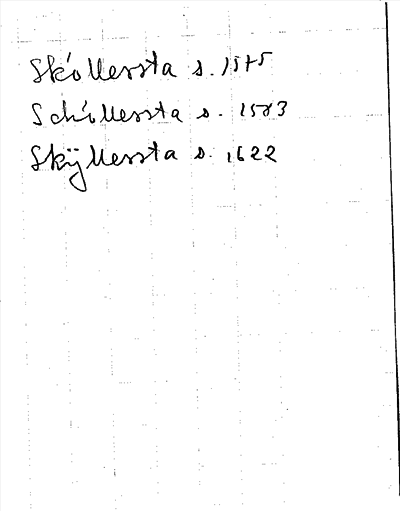 Skóllersta s. 1575
Schóllersta s. 1583
Skÿllersta s. 1622